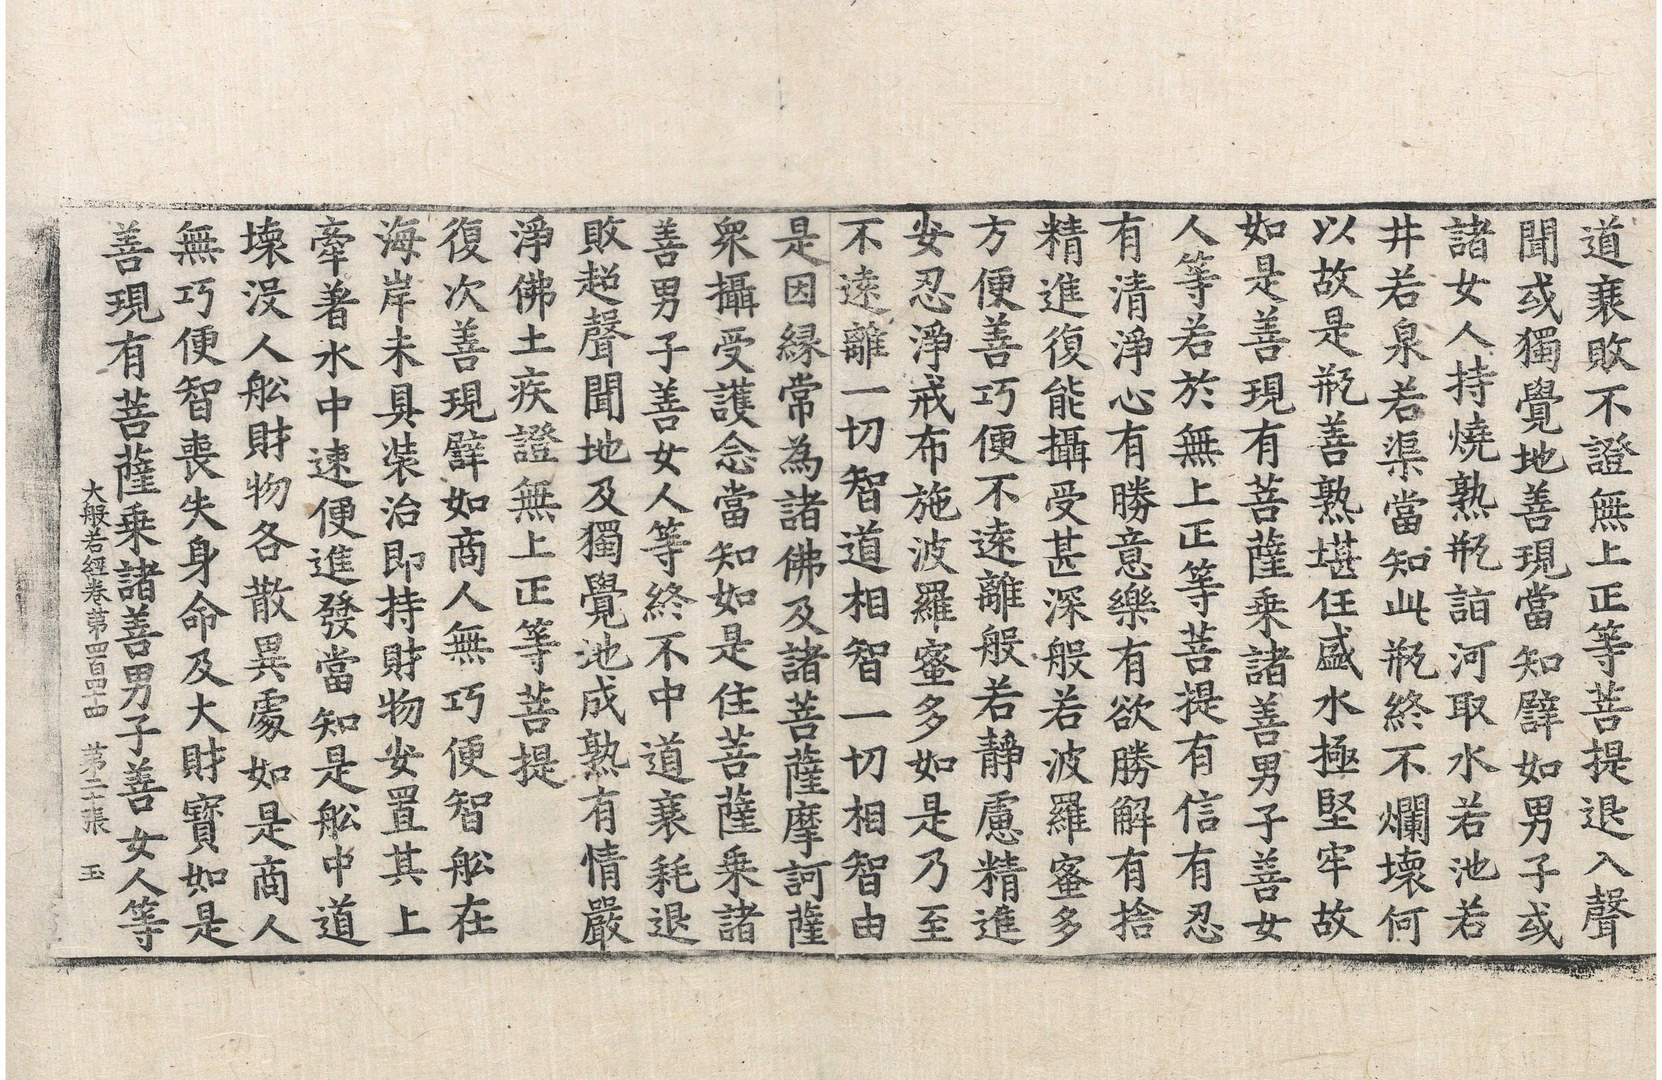 道衰敗不證無上正等菩提退入聲
聞或獨覺地善現當知譬如男子或
諸女人持燒熟瓶詣河取水若池若
井若泉若渠當知此瓶終不爛壞何
以故是瓶善熟堪任盛水極堅牢故
如是善現有菩薩乘諸善男子善女
人等若於無上正等菩提有信有忍
有清淨心有勝意樂有欲勝解有捨
精進復能攝受甚深般若波羅蜜多
方便善巧便不遠離般若靜慮精進
安忍淨戒布施波羅蜜多如是乃至
不遠離一切智道相智一切相智由
是因緣常為諸佛及諸菩薩摩訶薩
衆攝受護念當知如是住菩薩乘諸
善男子善女人等終不中道衰耗退
敗超聲聞地及獨覺地成熟有情嚴
淨佛土疾證無上正等菩提
復次善現譬如商人無巧便智舩在
海岸未具裝治即持財物安置其上
牽著水中速便進發當知是舩中道
壞沒人舩財物各散異處如是商人
無巧便智喪失身命及大財寶如是
善現有菩薩乘諸善男子善女人等
大般若經卷第四百四十四 第二十張 玉